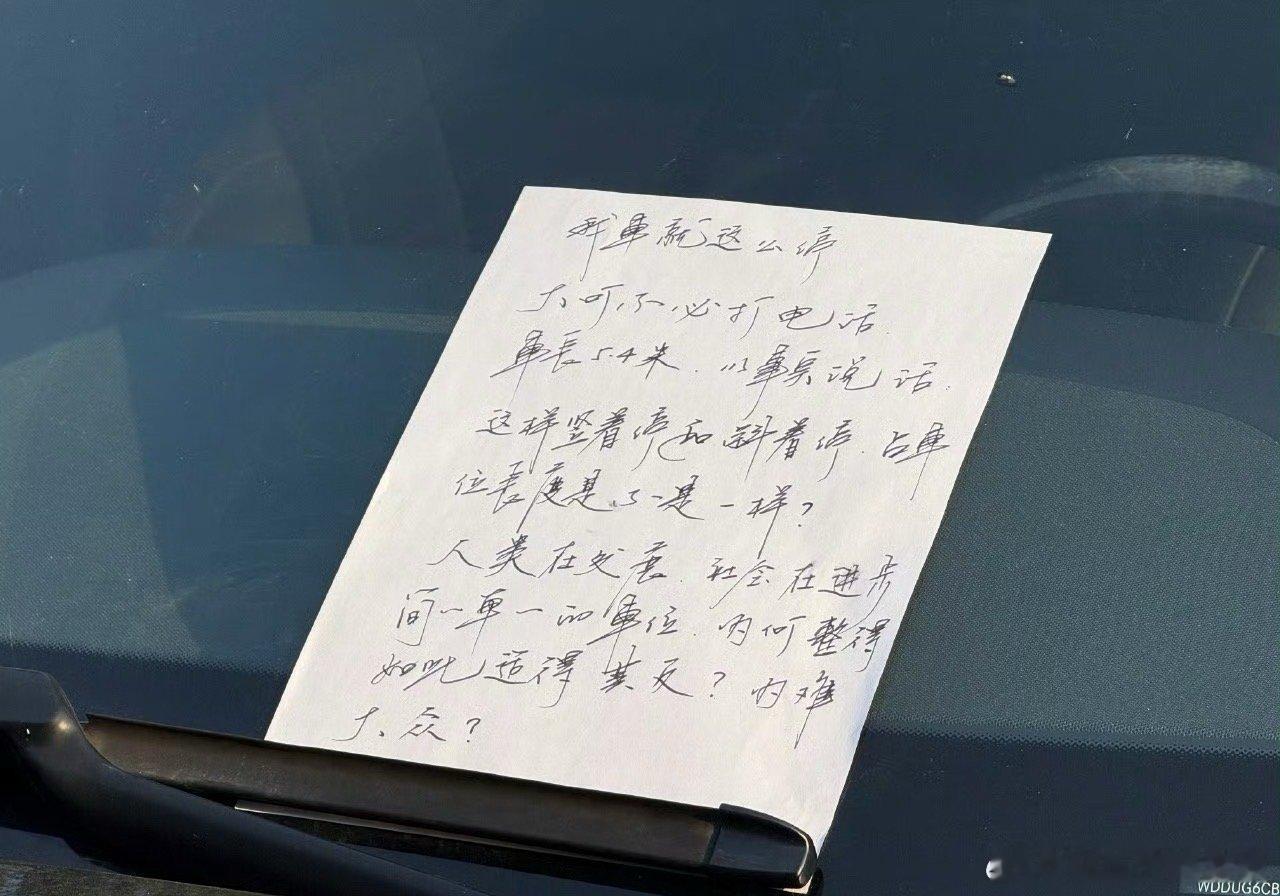 我車就这么停
大可不必打电话.
車長5.4米.以事实说话.
这样竖着停和斜着停.占車
位長度是不是一样?
人类在发展.社会在进步
简单的車位.为何整得
如此适得其反?为难
大众?
WDDUG6CB